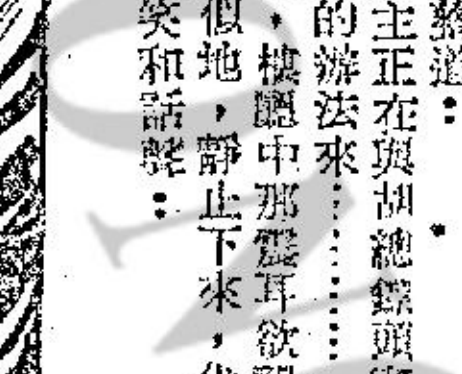 道：
主正在與胡總鏢頭
的辦法來：………
，樓廳中那震耳欲
似地，靜止下來，
笑和話聲：